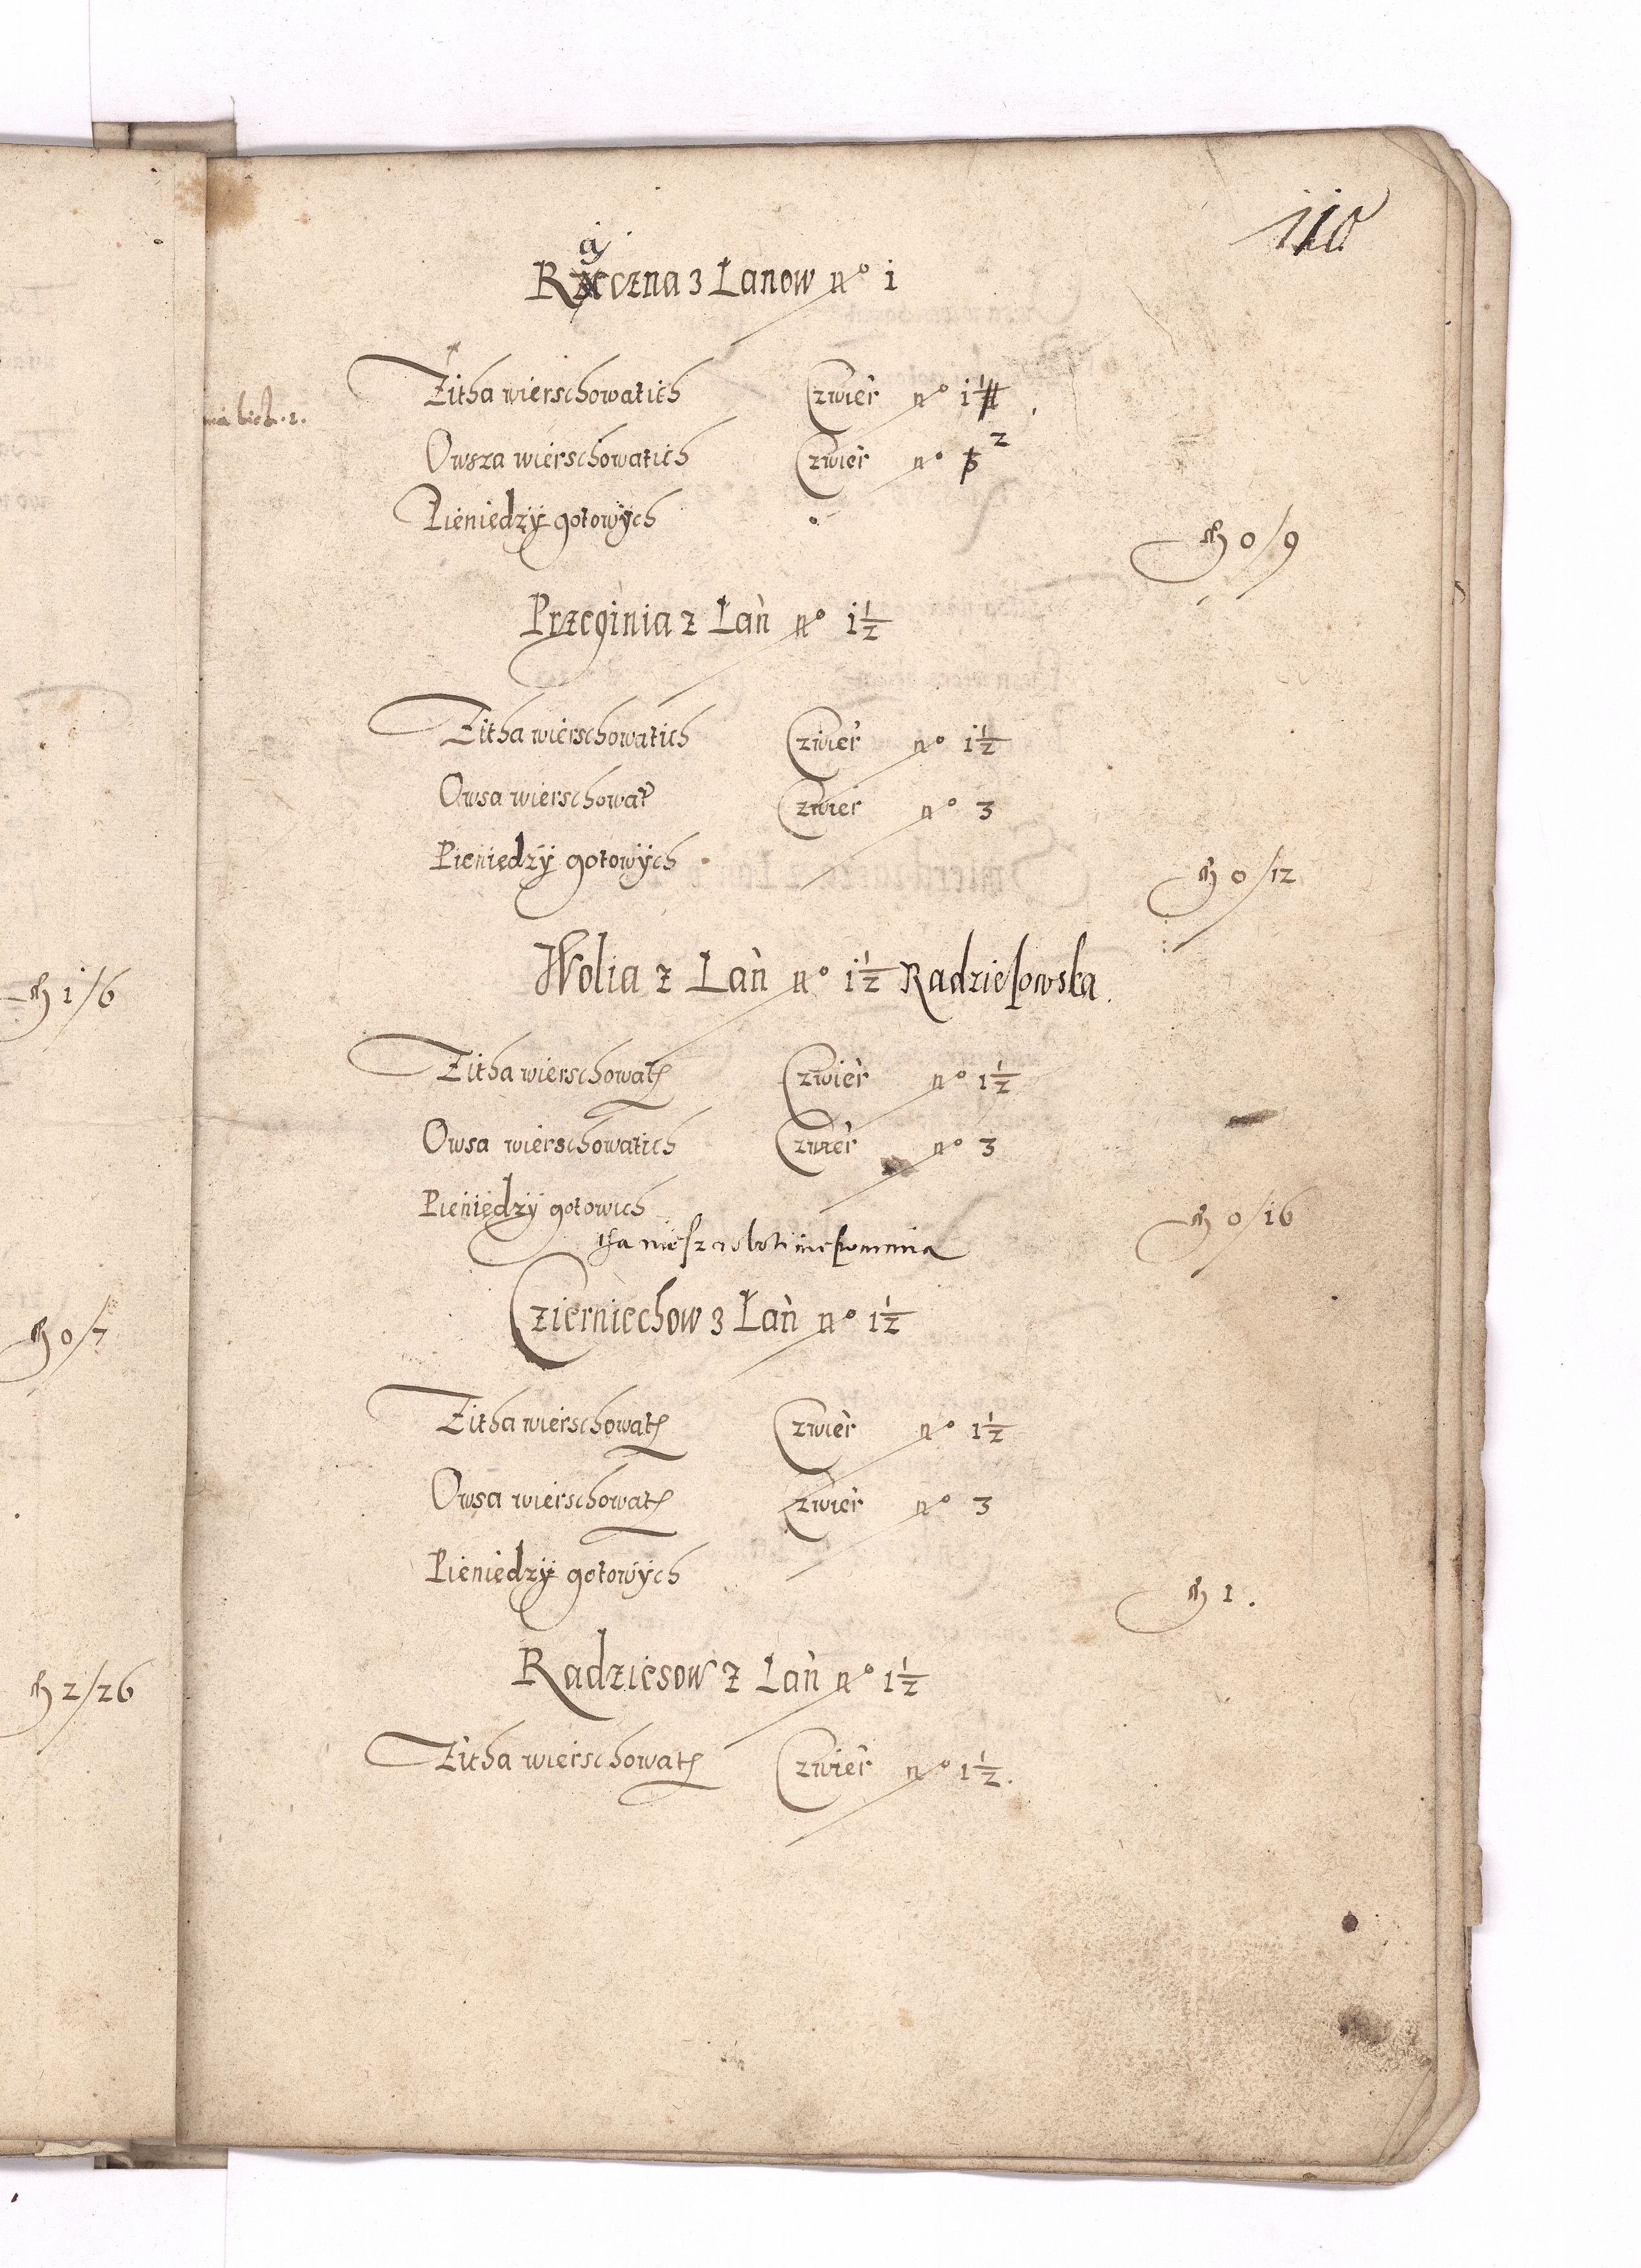 110
Rączna z Łanow no 1
Zitha wierschowatich Czwier no 1
Owsza wierschowatich Czwier no 2
Pieniedzÿ gotowÿch
m 0/9
Przeginia z Łan no 1 1/2
Zitha wierschowatich Czwier no 1 1/2
Owsa wierschowat Czwier no 3
Pieniedzÿ gotowÿch
m 0/12
Wolia z Łan no 1 1/2 Radziessowska
Zitha wierschowat Czwier no 1 1/2
Owsa wierschowatich Czwier no 3
Pieniedzÿ gotowich
m 0/16
tha
Czierniechow z Łan no 1 1/2
Zitha wierschowat Czwier no 1 1/2
Owsa wierschowat Czwier no 3
Pieniedzÿ gotowÿch
m 1.
Radziesow z Łan no 1 1/2
Zitha wierschowat Czwier no 1 1/2.
m 1/6
m 0/7
m 2/26